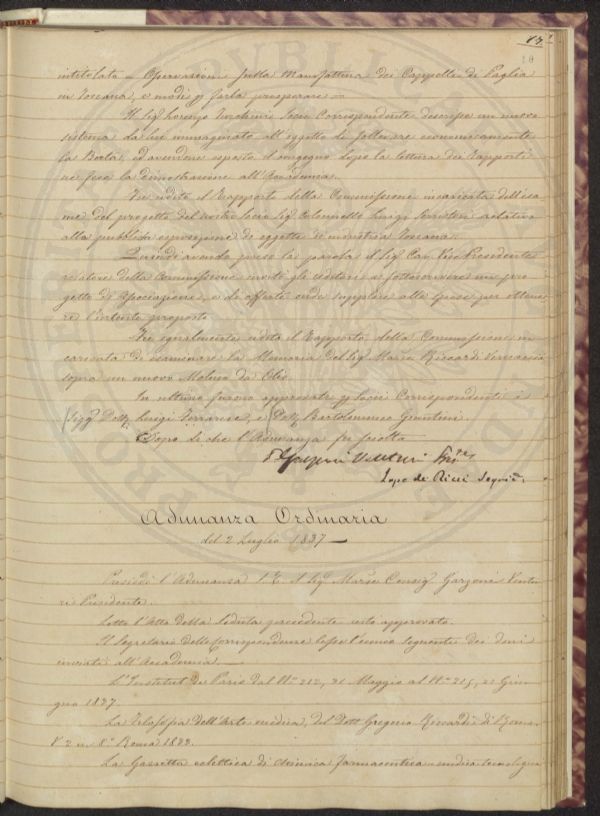 17
10
intitolato = Operazioni sulla Manifattura dei Cappelli di Paglia
in Toscana, e modi p farla prosperare =
Il Sig Lorenzo Turchini Socio Corrispondente descrisse un nuovo
sistema da lui immaginato all'oggetto di sollevare economicamente
la Botta, ed avendone esposto il congegno dopo la lettura dei Rapporti
ne fece la dimostrazione all'Accademia.
Fu udito il Rapporto della Commissione incaricata dell'esa
me del progetto del nostro Socio Sig Colonnello Luigi Serristori relativo
alla pubblica esposizione di oggetti d'industria Toscana.
Quindi avendo preso la parola il Sig Cav Vice Presidente
relatore della Commissione invitò gli uditori a sottoscrivere un pro
getto di Associazione, e le offerte onde supplire alle spese per ottene
re l'intento proposto
Fu egualmente udito il Rapporto della Commissione in
caricata di esaminare la Memoria del Sig Marse Riccardi Vernaccia
sopra un nuovo Molino da Olio
In ultimo furono approvati p Socii Corrispondenti i
Sigg Dott Luigi Ferrarese, e Dott Bartolommeo Giuntini.
Dopo di che l'Adunanza fu sciolta
P Garzoni Venturi Pres
Lapo de Ricci Segrio
Adunanza Ordinaria
del 2 Luglio 1837 —
Presiedè l'Adunanza S. E. il Sig Marse Consig Garzoni Ventu
ri Presidente.
Letto l'Atto della Seduta precedente restò approvato.
Il Segretario delle Corrispondenze lesse l'elenco seguente dei doni
inviati all'Accademia. —
L'Institut de Paris dal No 212, 31 Maggio al No 215, 21 Giu
gno 1837.
La Filosofia dell'Arte medica, del Dott Gregorio Riccardi di Roma
V 2 in 8o Roma 1833.
La Gazzetta eclettica di chimica farmaceutica medica tecnologica